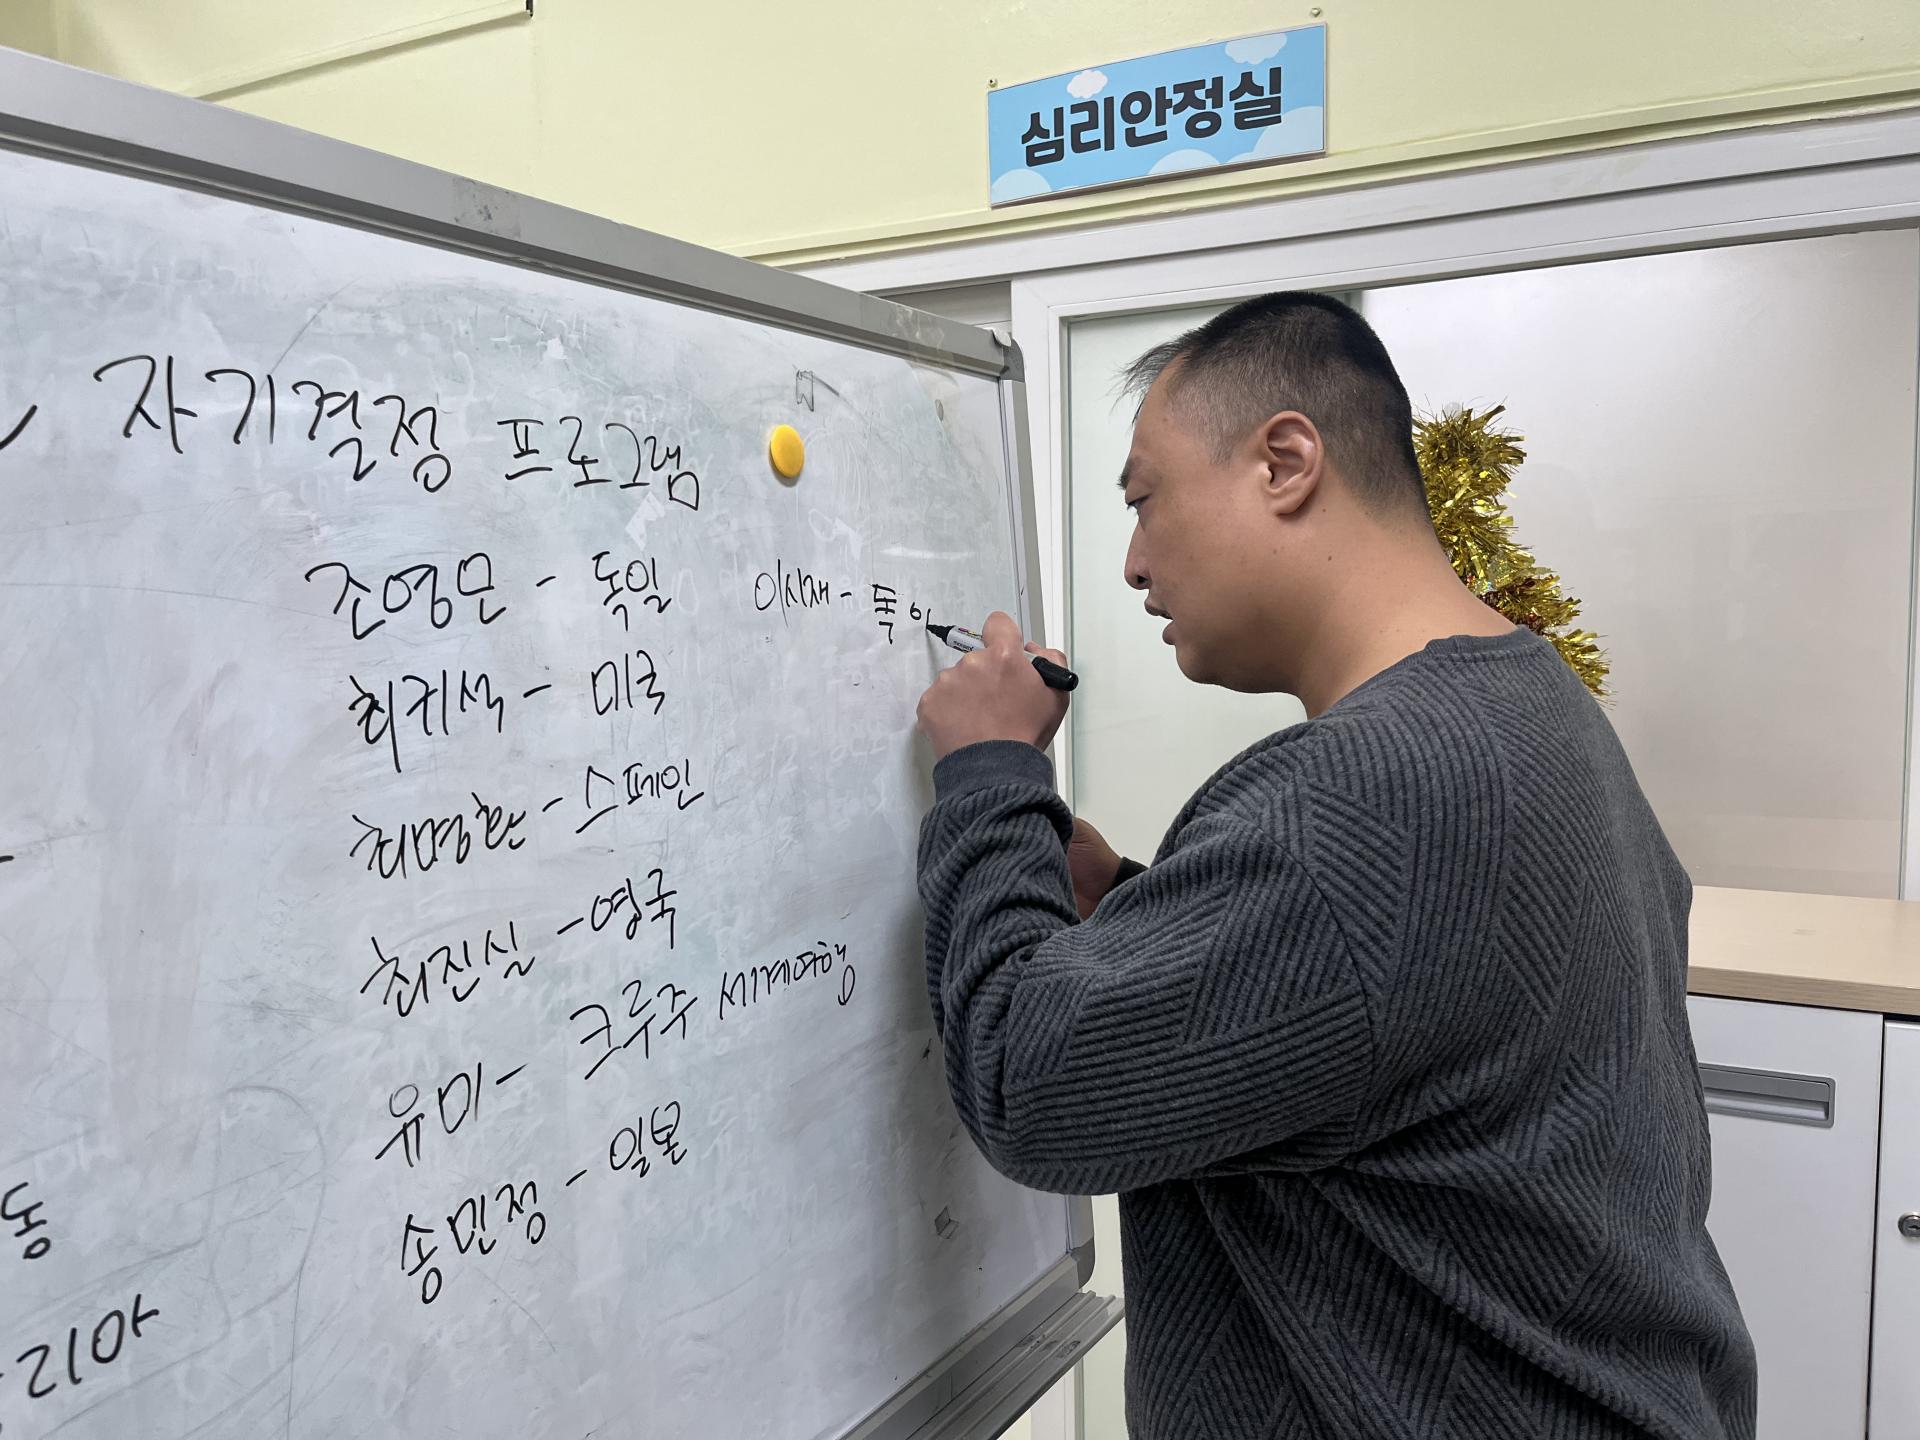 심리안정실
자기결정 프로그램
조영문 - 독일
이시재 - 독이
최귀석 - 미국
최명환 - 스페인
최진실 - 영국
유미 - 크루주 세계여행
송민정 - 일본
동
리아